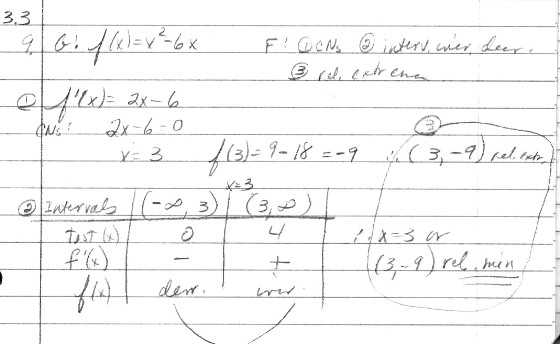 3.3
9. G: f(x)=x²-6x F: ① CNs ② interv. incr, decr.
③ rel. extrema
① f'(x) = 2x-6
CNs: 2x-6=0
x=3 f(3)=9-18=-9 ∴ (3,-9) rel. extr.
③
x=3
② Intervals (-∞, 3) (3, ∞)
test (x) 0 4 ∴ x=3 or
f'(x) - + (3,-9) rel. min
f(x) decr. incr.